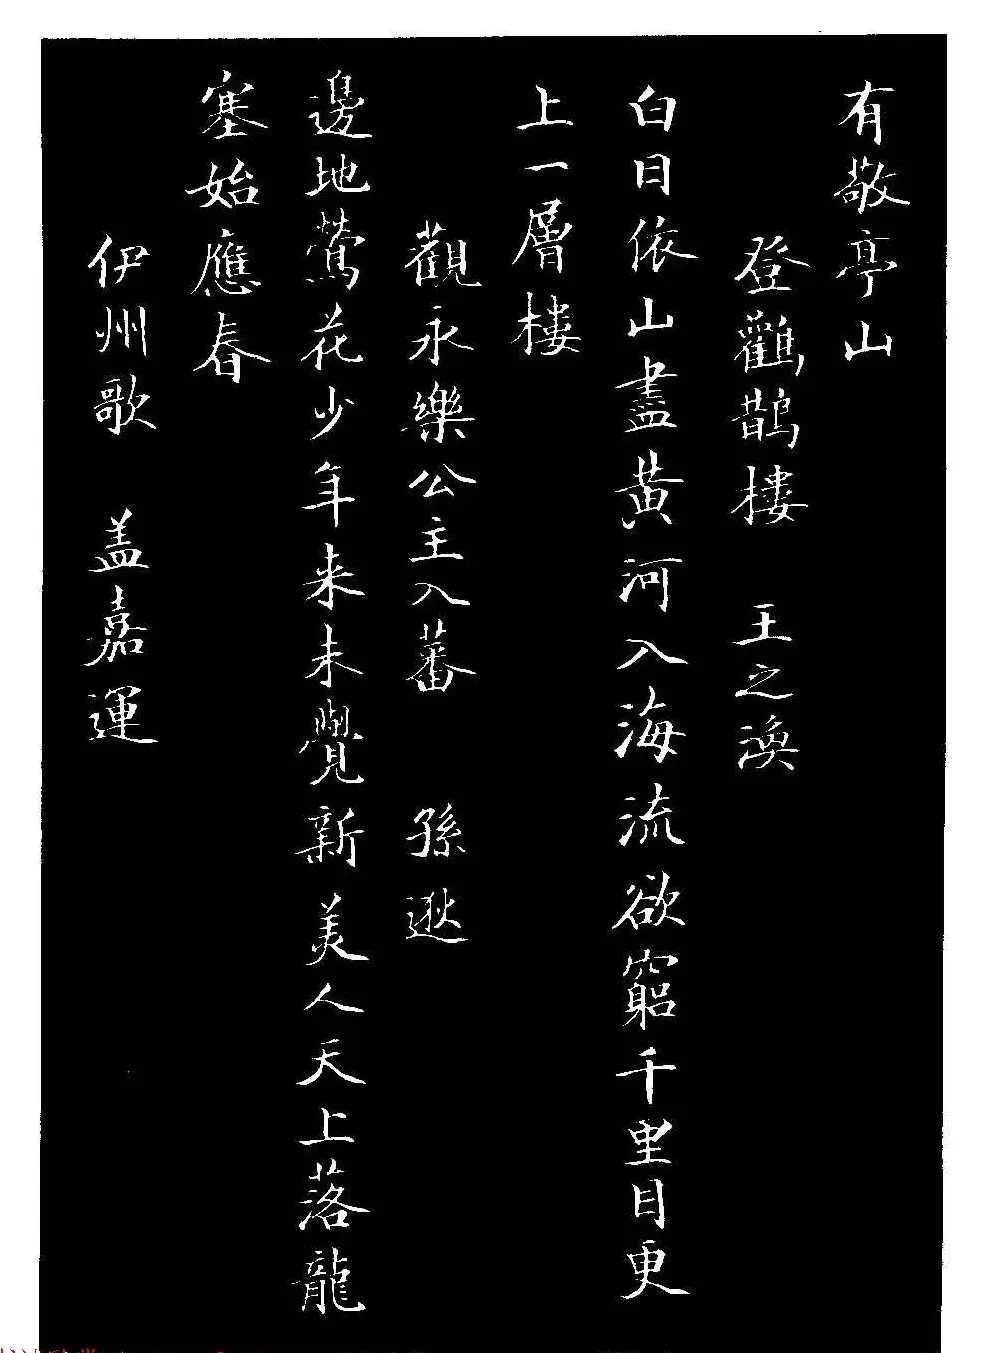 有敬亭山
登鸛鵲樓 王之渙
白日依山盡黃河入海流欲窮千里目更
上一層樓
觀永樂公主入蕃 孫逖
邊地鶯花少年来未覺新美人天上落龍
塞始應春
伊州歌 盖嘉運